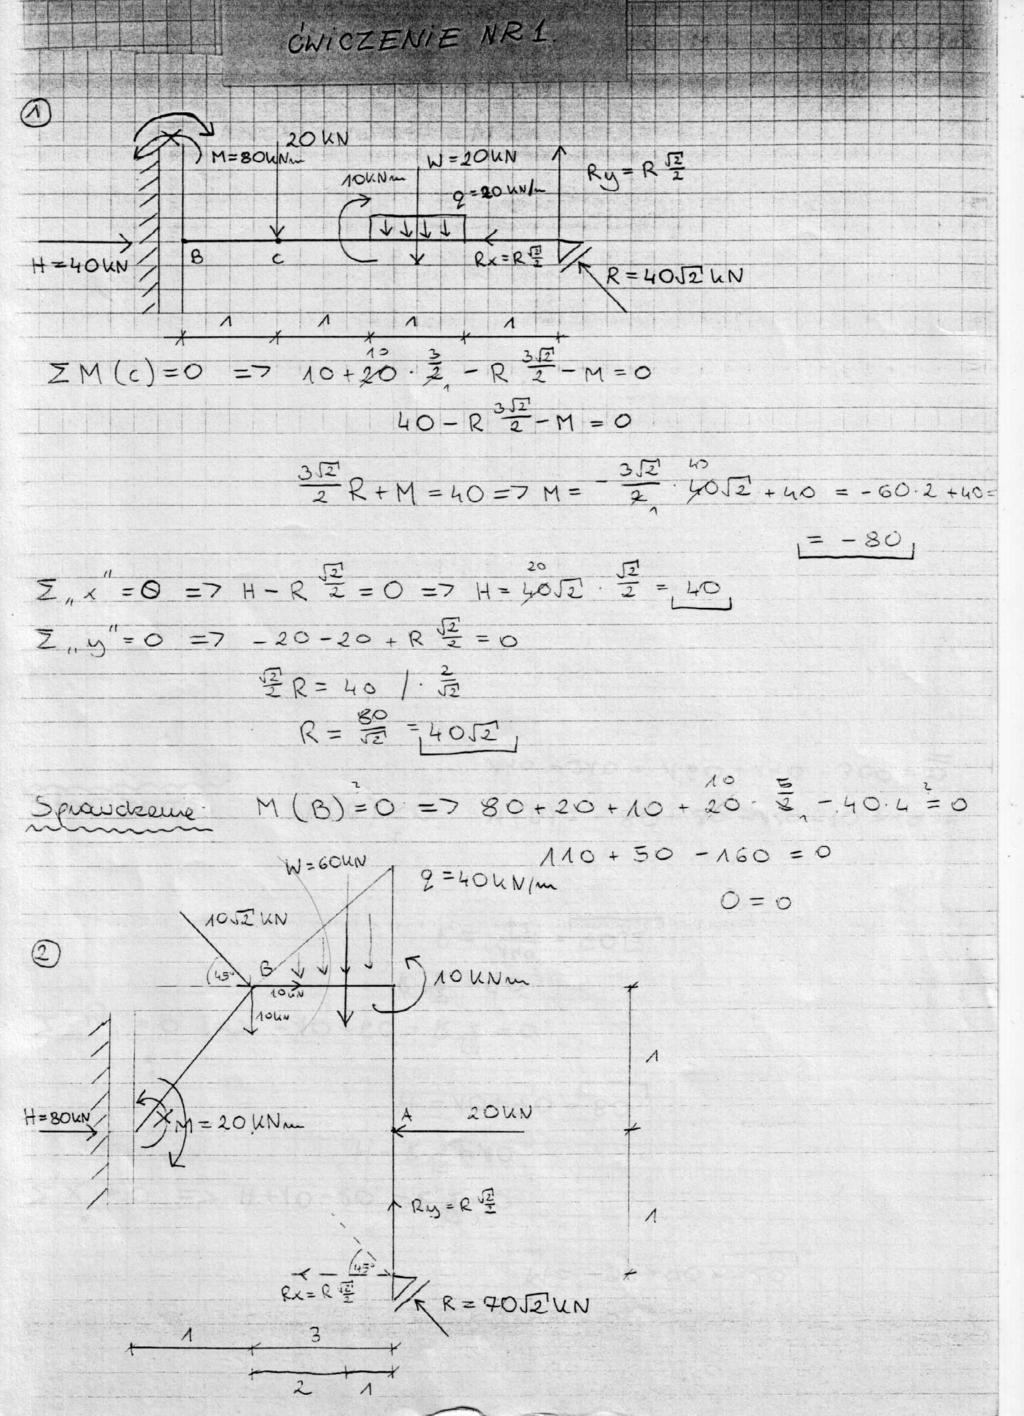 ĆWICZENIE NR 1.
①
20 kN
M=80kNm
W=20kN
10kNm
q=20 kN/m
Ry = R √2/2
H=40kN
B
C
Rx=R √2/2
R=40√2 kN
1 1 1 1
ΣM(c)=0 => 10+20·3/2 - R 3√2/2 - M=0
10
1
40 - R 3√2/2 - M = 0
3√2/2 R + M = 40 => M = - 3√2/2 · 40√2 + 40 = -60·2 +40=
1
= -80
Σ„x"=0 => H - R √2/2 = 0 => H = 40√2 · √2/2 = 40
20
Σ„y"=0 => -20-20 + R √2/2 = 0
√2/2 R = 40 /· 2/√2
R = 80/√2 = 40√2
Sprawdzenie: M(B)=0 => 80+20+10+20·5/2 - 40·4 = 0
?
10
1
?
110 + 50 - 160 = 0
0 = 0
②
W=60kN
q=40kN/m
10√2 kN
45°
B
10kN
10kN
10kNm
1
H=80kN
M=20kNm
A
20kN
Ry=R √2/2
1
45°
Rx=R √2/2
R=70√2 kN
1 3
2 1